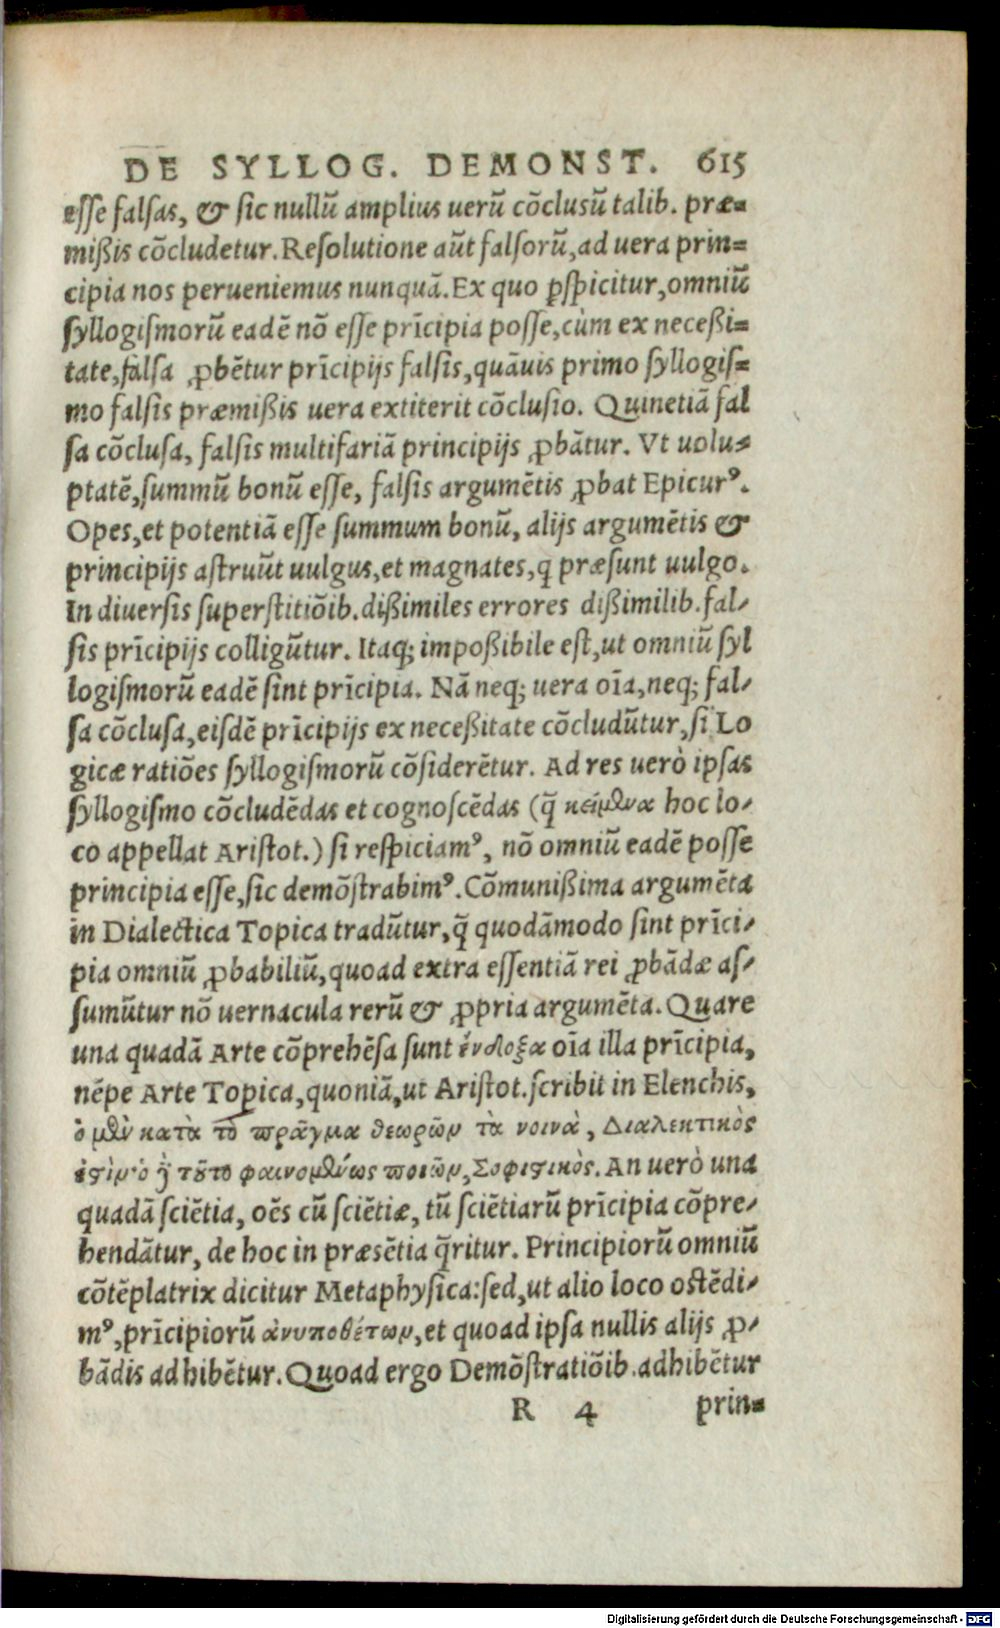 DE SYLLOG. DEMONST. 615
esse falsas, & sic nullũ amplius uerũ cõclusũ talib. præ=
mißis cõcludetur. Resolutione aũt falsorũ, ad uera prin=
cipia nos perueniemus nunquã. Ex quo ꝑspicitur, omniũ
syllogismorũ eadẽ nõ esse prĩcipia posse, cùm ex neceßi=
tate, falsa ꝓbẽtur prĩcipijs falsis, quãuis primo syllogis=
mo falsis præmißis uera extiterit cõclusio. Quinetiã fal
sa cõclusa, falsis multifariã principijs ꝓbãtur. Vt uolu=
ptatẽ, summũ bonũ esse, falsis argumẽtis ꝓbat Epicurꝰ.
Opes, et potentiã esse summum bonũ, alijs argumẽtis &
principijs astruũt uulgus, et magnates, q præsunt uulgo.
In diuersis superstitiõib. dißimiles errores dißimilib. fal-
sis prĩcipijs colligũtur. Itaq; impoßibile est, ut omniũ syl
logismorũ eadẽ sint prĩcipia. Nã neq; uera oĩa, neq; fal-
sa cõclusa, eisdẽ prĩcipijs ex neceßitate cõcludũtur, si Lo
gicæ ratiões syllogismorũ cõsiderẽtur. Ad res uerò ipsas
syllogismo cõcludẽdas et cognoscẽdas (q̃ κείμθνα hoc lo-
co appellat Aristot.) si respiciamꝰ, nõ omniũ eadẽ posse
principia esse, sic demõstrabimꝰ. Cõmunißima argumẽta
in Dialectica Topica tradũtur, q̃ quodãmodo sint prĩci-
pia omniũ ꝓbabiliũ, quoad extra essentiã rei ꝓbãdæ as-
sumũtur nõ uernacula rerũ & ꝓpria argumẽta. Quare
una quadã Arte cõprehẽsa sunt ἐνδοξα oĩa illa prĩcipia,
nẽpe Arte Topica, quoniã, ut Aristot. scribit in Elenchis,
ὁ μθὺ κατὰ τὸ πρᾶγμα θεωρῶν τὰ νοινὰ, Διαλεκτικὸς
ἐςὶν· ὁ ϳ τȣ̃το φαινομθύως ποιῶν, Σοφιςικὸς. An uerò una
quadã sciẽtia, oẽs cũ sciẽtiæ, tũ sciẽtiarũ prĩcipia cõpre-
hendãtur, de hoc in præsẽtia q̃ritur. Principiorũ omniũ
cõtẽplatrix dicitur Metaphysica: sed, ut alio loco ostẽdi-
mꝰ, prĩcipiorũ ἀνυποθέτων, et quoad ipsa nullis alijs ꝓ-
bãdis adhibẽtur. Quoad ergo Demõstratiõib. adhibẽtur
R 4 prin=
Digitalisierung gefördert durch die Deutsche Forschungsgemeinschaft - DFG